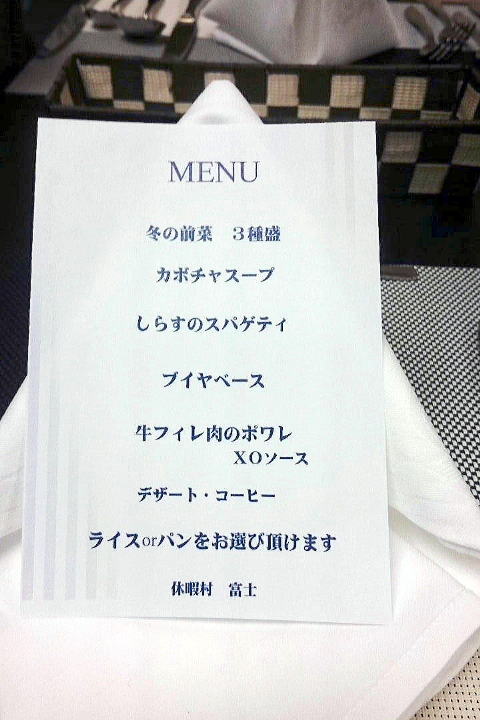 MENU
冬の前菜　３種盛
カボチャスープ
しらすのスパゲティ
ブイヤベース
牛フィレ肉のポワレ
ＸＯソース
デザート・コーヒー
ライスorパンをお選び頂けます
休暇村　富士